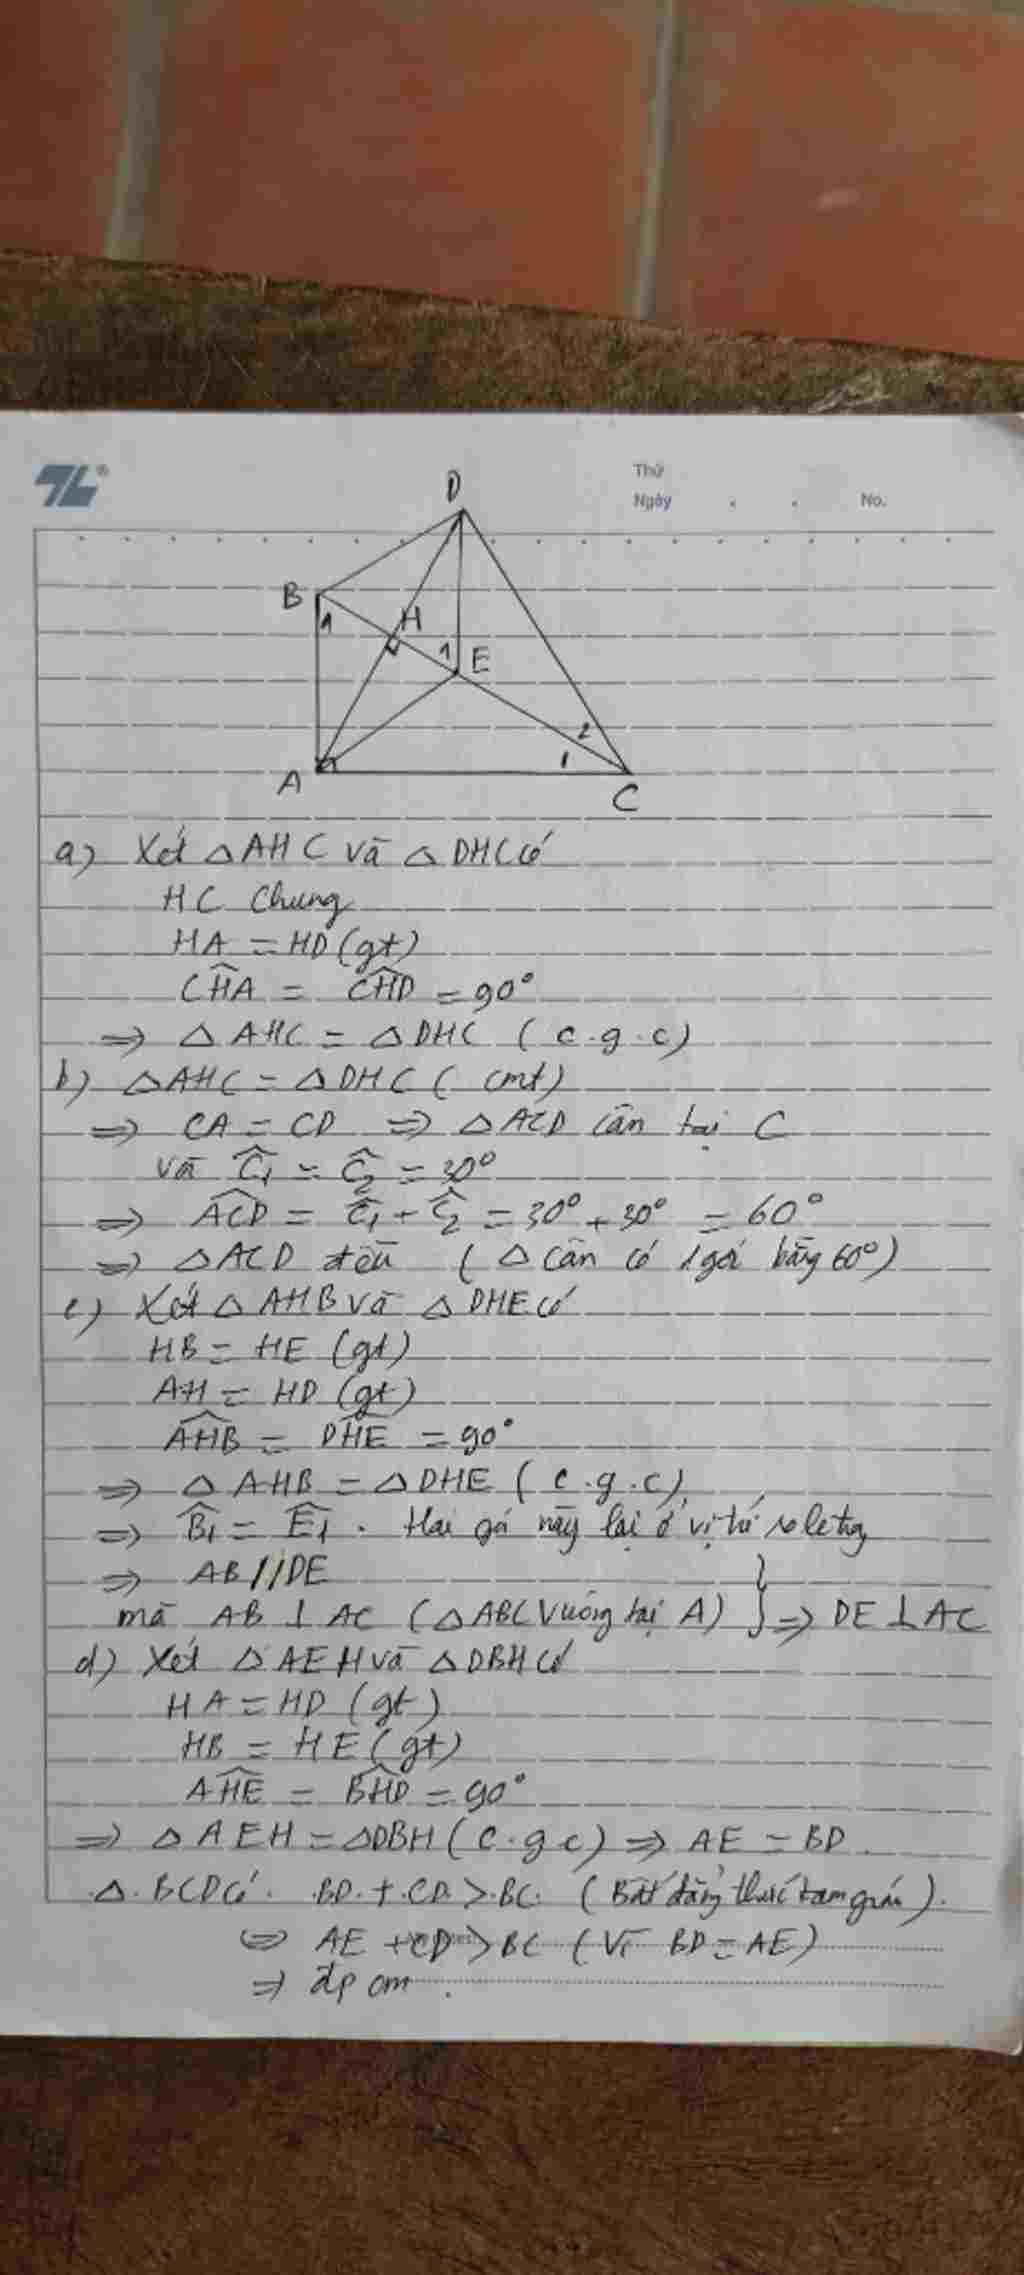 Thứ
Ngày . . No.
D
B 1 H
1 E
2
A 1 C
a) Xét △AHC và △DHC có
HC chung
HA = HD (gt)
CĤA = CĤD = 90°
=> △AHC = △DHC (c.g.c)
b) △AHC = △DHC (cmt)
=> CA = CD => △ACD cân tại C
và Ĉ1 = Ĉ2 = 30°
=> AĈD = Ĉ1 + Ĉ2 = 30° + 30° = 60°
=> △ACD đều (△ cân có 1 góc bằng 60°)
c) Xét △AHB và △DHE có
HB = HE (gt)
AH = HD (gt)
AĤB = DĤE = 90°
=> △AHB = △DHE (c.g.c)
=> B̂1 = Ê1. Hai gó này lại ở vị trí so le trg
=> AB // DE
mà AB ⊥ AC (△ABC vuông tại A) } => DE ⊥ AC
d) Xét △AEH và △DBH có
HA = HD (gt)
HB = HE (gt)
AĤE = BĤD = 90°
=> △AEH = △DBH (c.g.c) => AE = BD
△BCD có BD + CD > BC (Bất đẳng thức tam giác).
=> AE + CD > BC (Vì BD = AE)
=> đpcm.